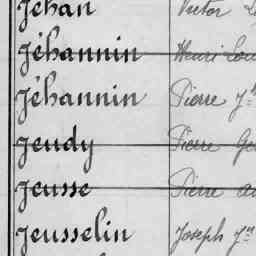 Jéhan Victor
Jéhannin Henri Lou
Jéhannin Pierre Jn
Jeudy Pierre Ge
Jeusse Pierre au
Jeusselin Joseph Jn